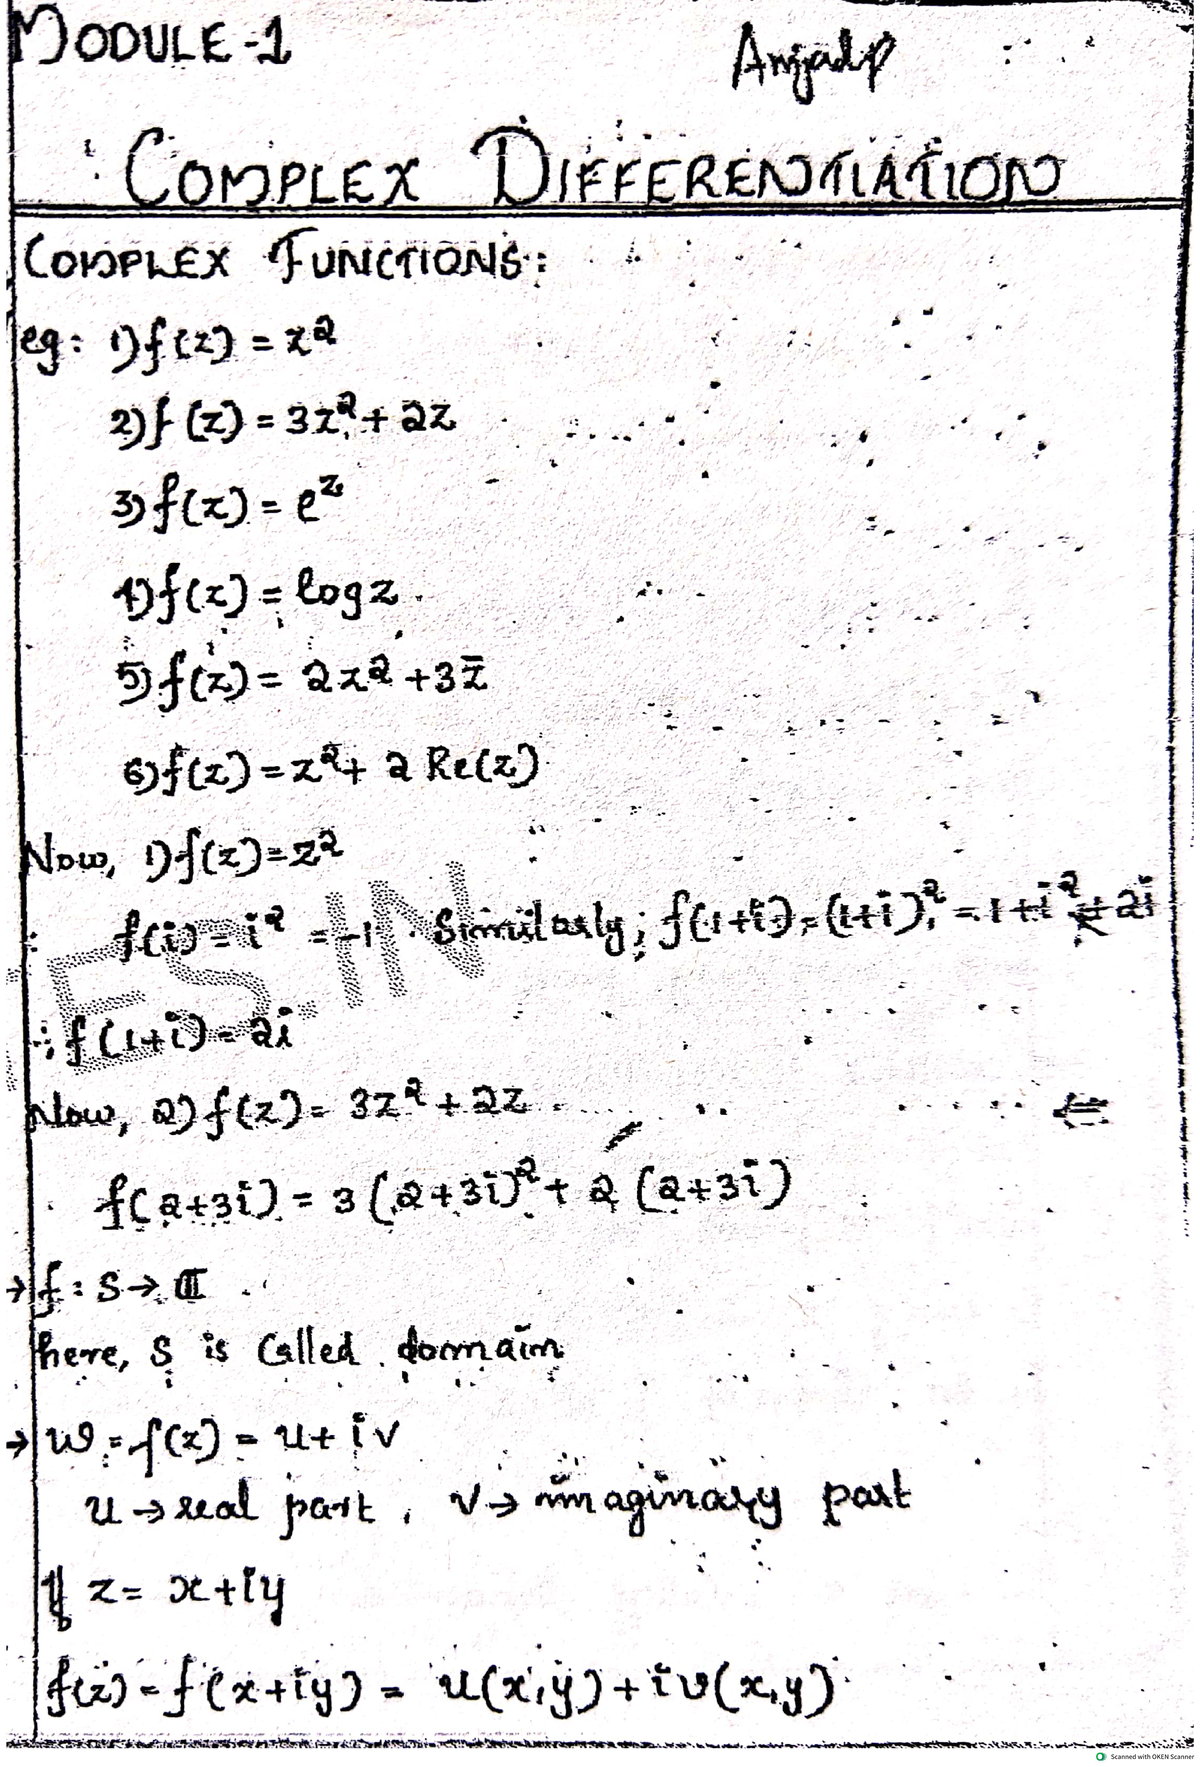 MODULE-1
Amjadp
COMPLEX DIFFERENTIATION
COMPLEX FUNCTIONS:
eg: 1) f(z) = z²
2) f(z) = 3z² + 2z
3) f(z) = e^z
4) f(z) = log z
5) f(z) = 2z² + 3z̄
6) f(z) = z² + 2 Re(z)
Now, 1) f(z) = z²
f(i) = i² = -1 Similarly; f(1+i) = (1+i)² = 1+i²+2i
ES.IN
∴ f(1+i) = 2i
Now, 2) f(z) = 3z² + 2z
f(2+3i) = 3(2+3i)² + 2(2+3i)
→ f : S → ℂ
here, S is called domain
→ w = f(z) = u + iv
u → real part, v → imaginary part
If z = x+iy
f(z) = f(x+iy) = u(x,y) + iv(x,y)
Scanned with OKEN Scanner